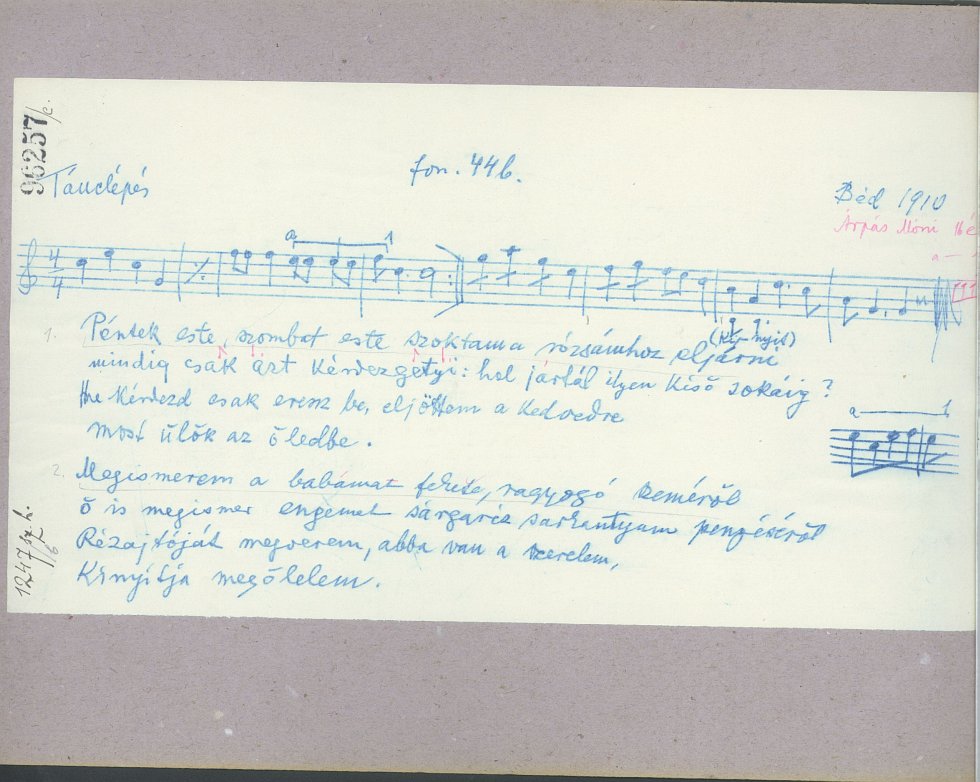 96257/c.
Tánclépés
fon. 44b.
Béd 1910
Árpás Móni 16 e
a 1
1. Péntek este, szombat este szoktam a rózsámhoz eljárni
(ki-nyit)
mindig csak azt kérdezgetyi: hol jártál ilyen késő sokáig?
Ne kérdezd csak eressz be, eljöttem a kedvedre
most ülök az öledbe.
a 1
2. Megismerem a babámat fekete, ragyogó szeméről
ő is megismer engemet sárgaréz sarkantyum pengéséről
Rézajtóját megverem, abba van a szerelem,
Kinyitja megölelem.